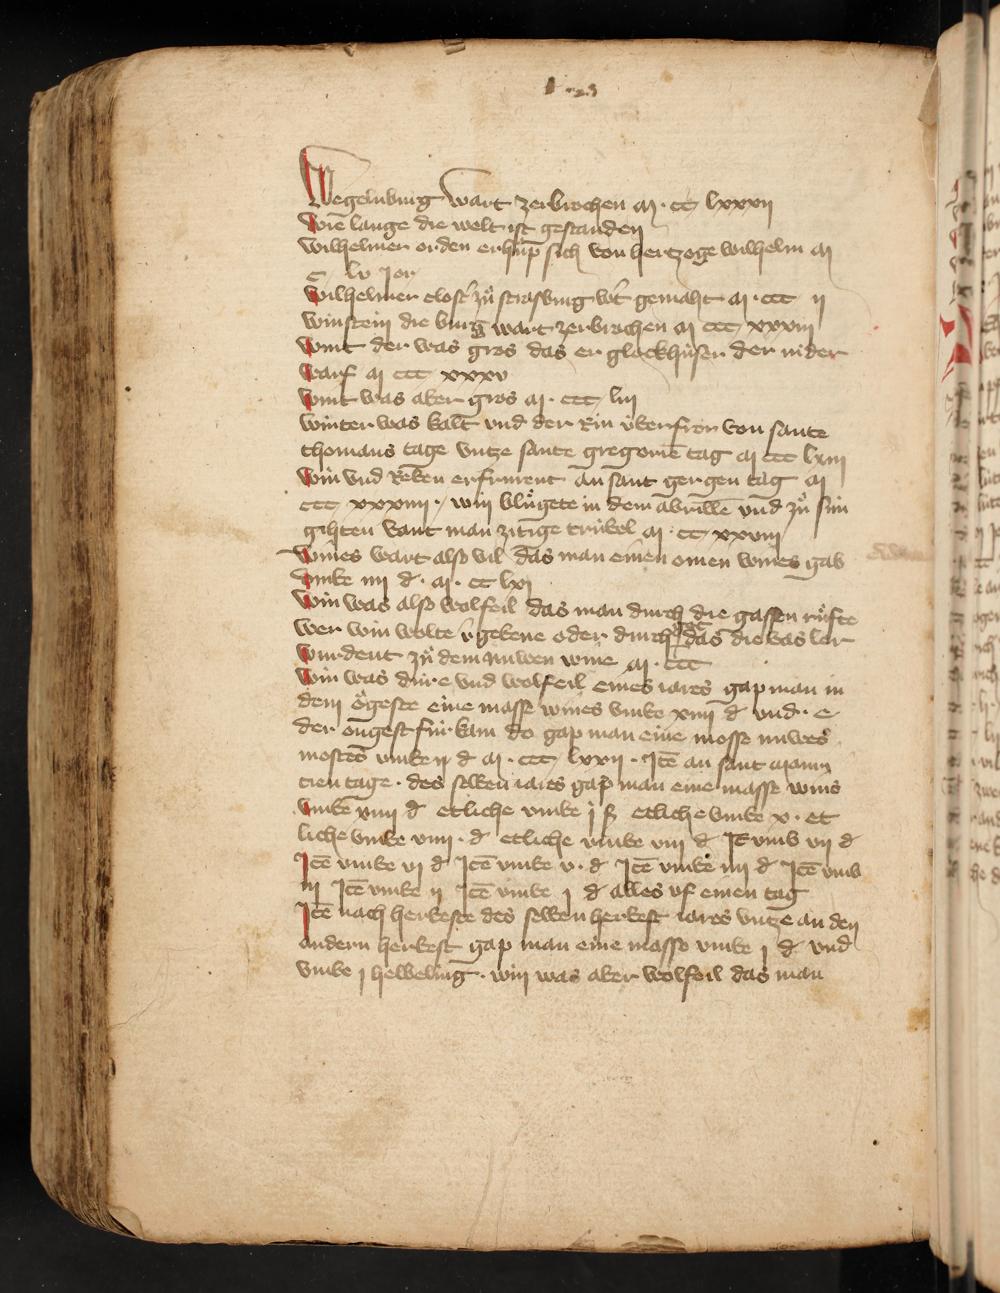 Wegelnburg wart zerbrochen m · cc lxxxij
Wie lange die welt ist gestanden
Wilhelmer orden erhup sich von hertzoge wilhelm m
c lv Jor
Wilhelmer closter zů strasburg wart gemaht m · ccc ij
Winstein die burg wart zerbrochen m ccc xxxiij
Wint der was gros das er glockhüser der nider
warf m ccc xxxv
Wint was aber gros m · ccc liij
Winter was kalt vnd der Rin überfror von sante
thomans tage vntze sante gregorien tag m ccc lxiij
Win vnd Reben erfrurent an sant gergen tag m
ccc xxxiiij · win blůgete in dem abrillen vnd zů sün
gihten vant man zitige trübel m · cc xxviij
Wines wart also vil das man einen omen wines gab
vmbe iiij d · m · cc lxj
Win was also wolfeil das man durch die gassen růfte
wer win wolte vergebene oder durch got das die vas ler
wurdent zů dem nuwen wine m · ccc
Win was düre vnd wolfeil eines iares gap man in
dem ögeste eine masse wines vmbe xiiij d vnd · e
der ougest für kam do gap man eine mosse nuwes
mostes vmbe ij d m · ccc lxxij · Item an sant
tage · des selben iares gap man eine masse wins
vmbe xiiij d etliche vmbe j ß etliche vmbe x · et
liche vmbe viiij · d etliche vmbe viij d Item vmb vij d
Item vmbe vj d Item vmbe v · d Item vmbe iiij d Item vmb
iij Item vmbe ij Item vmbe j d alles vf einen tag
Item nach herbeste des selben herbest iares vntze an den
andern herbest gap man eine masse vmbe j d vnd
vmbe j helbeling · win was aber wolfeil das man